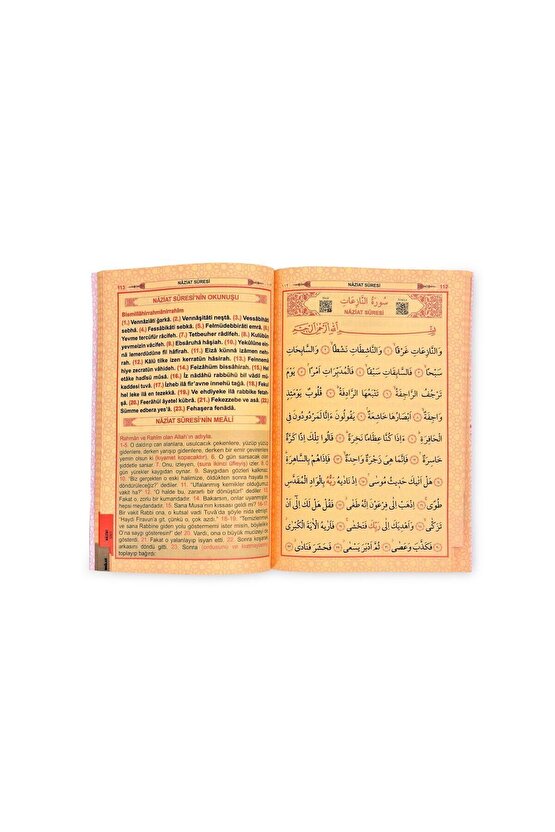 113
NÂZİAT SÛRESİ
NÂZİAT SÛRESİ'NİN OKUNUŞU
Bismillâhirrahmânirrahîm
(1.) Vennâziâti ğarkâ. (2.) Vennâşitâti neştâ. (3.) Vessâbihâti
sebhâ. (4.) Fessâbikâti sebkâ. (5.) Felmüdebbirâti emrâ. (6.)
Yevme tercüfür râcifeh. (7.) Tetbeuher râdifeh. (8.) Kulûbüy
yevmeizin vâcifeh. (9.) Ebsâruhâ hâşiah. (10.) Yekûlûne ein-
nâ lemerdûdûne fil hâfirah. (11.) Eizâ künnâ izâmen neh-
rah. (12.) Kâlû tilke izen kerratün hâsirah. (13.) Feinnemâ
hiye zecratün vâhideh. (14.) Feizâhüm bissâhirah. (15.) Hel
etâke hadîsü mûsâ. (16.) İz nâdâhü rabbühû bil vâdil mü-
kaddesi tuvâ. (17.) İzheb ilâ fir'avne innehû tağâ. (18.) Fekul
hel leke ilâ en tezekkâ. (19.) Ve ehdiyeke ilâ rabbike fetahşâ.
(20.) Feerâhül âyetel kübrâ. (21.) Fekezzebe ve asâ. (22.)
Sümme edbera yes'â. (23.) Fehaşera fenâdâ.
NÂZİAT SÛRESİ'NİN MEÂLİ
Rahmân ve Rahîm olan Allah'ın adıyla.
1-5. O daldırıp can alanlara, usulcacık çekenlere, yüzüp yüzüp
gidenlere, derken yarışıp gidenlere, derken bir emir çevirenlere
yemin olsun ki (kıyamet kopacaktır). 6. O gün sarsacak olan
şiddetle sarsar. 7. Onu, izleyen, (sura ikinci üfleyiş) izler. 8. O
gün yürekler kaygıdan oynar. 9. Saygıdan gözleri kalkmaz.
10. "Biz gerçekten o eski halimize, öldükten sonra hayata mı
döndürüleceğiz?" derler. 11. "Ufalanmış kemikler olduğumuz
vakit ha?" 12. "O halde bu, zararlı bir dönüştür!" dediler. 13.
Fakat o, zorlu bir kumandadır. 14. Bakarsın, onlar uyanıvermiş,
hepsi meydandadır. 15. Sana Musa'nın kıssası geldi mi? 16-17.
Bir vakit Rabbi ona, o kutsal vadi Tuvâ'da şöyle nida etmişti:
"Haydi Firavun'a git, çünkü o, çok azdı." 18-19. "Temizlenmek
ister misin? ve sana Rabbine giden yolu göstermemi
O'na saygı gösteresin" de! 20. Vardı, ona o büyük mucizeyi
gösterdi. 21. Fakat o yalanlayıp isyan etti. 22. Sonra koşarak
arkasını döndü gitti. 23. Sonra (ordusunu ve kavmini)
toplayıp bağırdı:
١١٢
NÂZİAT SÛRESİ
112
سُورَةُ النَّازِعَاتِ
NÂZİAT SÛRESİ
بِسْمِ اللهِ الرَّحْمٰنِ الرَّحِيمِ
وَالنَّازِعَاتِ غَرْقًا ﴿١﴾ وَالنَّاشِطَاتِ نَشْطًا ﴿٢﴾ وَالسَّابِحَاتِ
سَبْحًا ﴿٣﴾ فَالسَّابِقَاتِ سَبْقًا ﴿٤﴾ فَالْمُدَبِّرَاتِ اَمْرًا ﴿٥﴾ يَوْمَ
تَرْجُفُ الرَّاجِفَةُ ﴿٦﴾ تَتْبَعُهَا الرَّادِفَةُ ﴿٧﴾ قُلُوبٌ يَوْمَئِذٍ
وَاجِفَةٌ ﴿٨﴾ اَبْصَارُهَا خَاشِعَةٌ ﴿٩﴾ يَقُولُونَ ءَاِنَّا لَمَرْدُودُونَ فِي
الْحَافِرَةِ ﴿١٠﴾ ءَاِذَا كُنَّا عِظَامًا نَخِرَةً ﴿١١﴾ قَالُوا تِلْكَ اِذًا كَرَّةٌ
خَاسِرَةٌ ﴿١٢﴾ فَاِنَّمَا هِيَ زَجْرَةٌ وَاحِدَةٌ ﴿١٣﴾ فَاِذَا هُمْ بِالسَّاهِرَةِ
﴿١٤﴾ هَلْ اَتٰيكَ حَدِيثُ مُوسٰى ﴿١٥﴾ اِذْ نَادٰيهُ رَبُّهُ بِالْوَادِ الْمُقَدَّسِ
طُوًى ﴿١٦﴾ اِذْهَبْ اِلٰى فِرْعَوْنَ اِنَّهُ طَغٰى ﴿١٧﴾ فَقُلْ هَلْ لَكَ اِلٰى اَنْ
تَزَكّٰى ﴿١٨﴾ وَاَهْدِيَكَ اِلٰى رَبِّكَ فَتَخْشٰى ﴿١٩﴾ فَاَرٰيهُ الْاٰيَةَ الْكُبْرٰى
﴿٢٠﴾ فَكَذَّبَ وَعَصٰى ﴿٢١﴾ ثُمَّ اَدْبَرَ يَسْعٰى ﴿٢٢﴾ فَحَشَرَ فَنَادٰى ﴿٢٣﴾